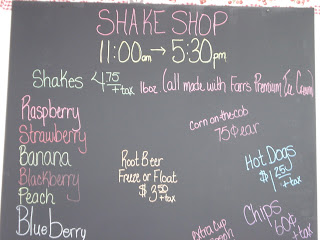 SHAKE SHOP
11:00am → 5:30pm
Shakes 4.75 +tax 16oz. (all made with Farrs Premium Ice Cream)
Raspberry
Strawberry
Banana
Blackberry
Peach
Blueberry
corn on the cob
75¢ ear
Root Beer
Freeze or Float
$3.50 +tax
Hot Dogs
$1.25 +tax
Chips
60¢ +tax
extra cup